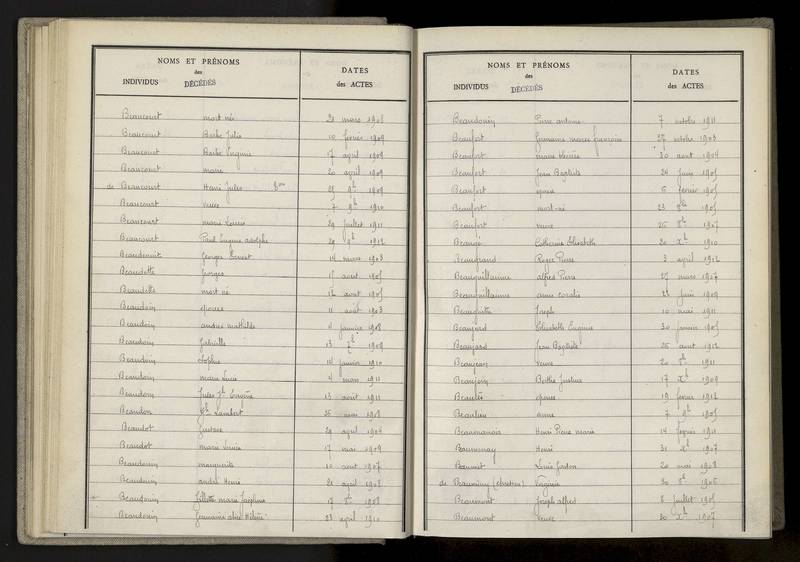 NOMS ET PRÉNOMS
des
INDIVIDUS DÉCÉDÉS
DATES
des ACTES
Beaucourt mort né 21 mars 1908
Beaucourt Barbe Julie 10 février 1909
Beaucourt Barbe Eugénie 17 april 1909
Beaucourt marie 20 april 1909
de Beaucourt Henri Jules 9bre 1909
Beaucourt veuve 7 9b 1910
Beaucourt marie Louise 29 juillet 1911
Beaucourt Paul Eugène adolphe 29 9b 1912
Georges Ernest 14 mars 1903
Beaudette Georges 15 aout 1905
Beaudette mort né 12 aout 1905
Beaudoin épouse 11 août 1903
Beaudoin andrée mathilde 4 janvier 1908
Beaudoin 13 1909
Beaudoin Sophie 14 janvier 1910
Beaudoin marie Lucie 4 mars 1911
Beaudoin Jules Eugène 13 août 1911
Beaudon Lambert 26 mai 1908
Beaudot Gustave 29 april 1904
Beaudot marie Louise 17 mai 1909
Beaudouin marguerite 10 aout 1907
Beaudouin andré Henri 21 april 1908
Beaudouin Juliette marie Joséphine 17 1908
Beaudouin Germaine alice Hélène 23 april 1910
NOMS ET PRÉNOMS
des
INDIVIDUS DÉCÉDÉS
DATES
des ACTES
Beaudouin Pierre antoine 7 octobre 1911
Beaufort Germaine marie françoise 27 octobre 1903
Beaufort marie 30 aout 1904
Beaufort Jean Baptiste 24 juin 1905
Beaufort épouse 6 février 1905
Beaufort mort-né 23 1905
Beaufort veuve 26 8b 1907
Beaugé Catherine Elisabeth 30 Xb 1910
Beaugrand Roger Pierre 3 april 1912
Beauguillaume alfred Pierre 27 mars 1907
Beauguillaume anne coralie juin 1909
Joseph 10 mai 1911
Beaujard Elisabeth Eugénie 30 janvier 1905
Beaujard Jean Baptiste 26 aout 1912
Beaujean Veuve 20 8b 1911
Beaujoin Berthe Justine 17 Xb 1909
épouse 19 février 1912
Beaulieu anne 7 9b 1905
Beaumanoir Henri Pierre marie 14 février 1911
Henri 31 Xb 1907
Louis Gaston 20 mai 1908
de Virginie 30 8b 1906
Beaumont Joseph alfred 8 juillet 1905
Beaumont Veuve 30 Xb 1907